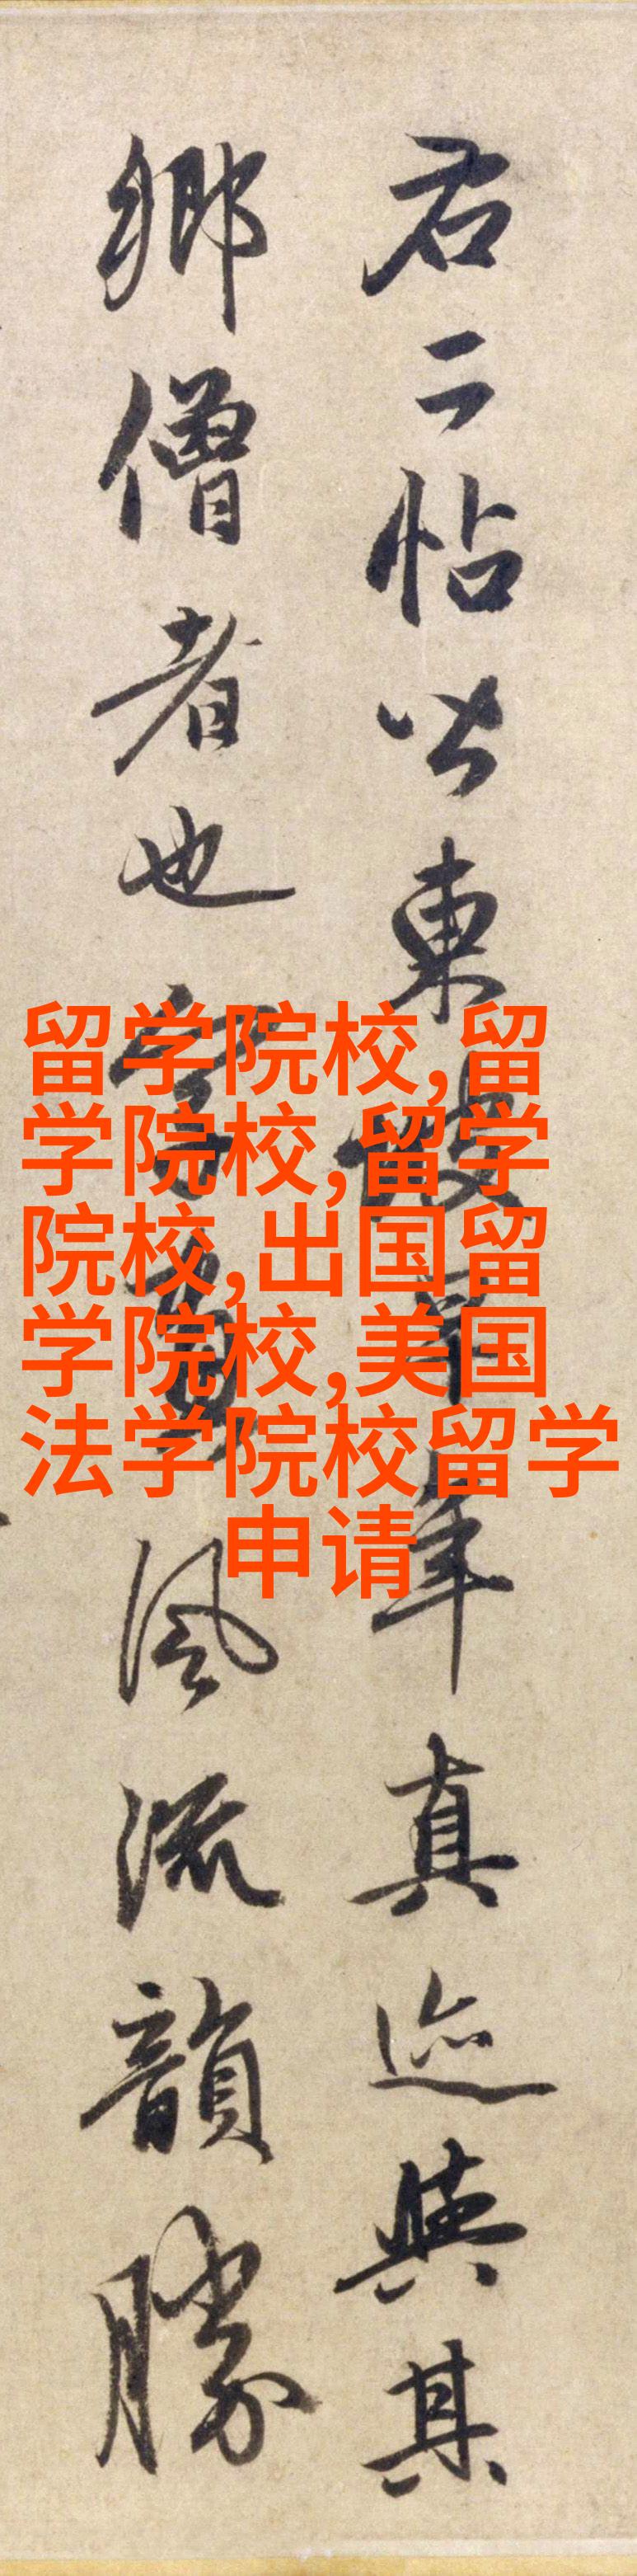 右二帖皆東坡早年真迹與其
鄉僧者也字畫風流韻勝
留学院校,留
学院校,留学
院校,出国留
学院校,美国
法学院校留学
申请